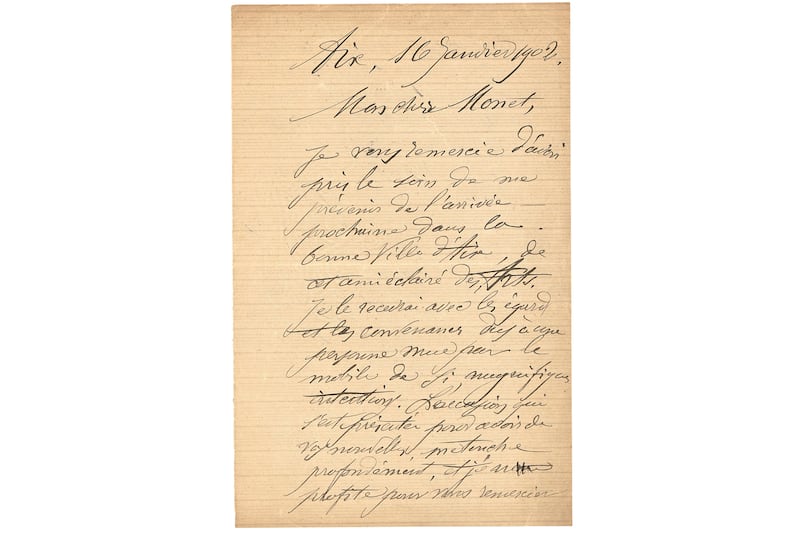 Aix, 16 Janvier 1902.
Mon cher Monet,
Je vous remercie d'avoir
pris le soin de me
prévenir de l'arrivée
prochaine dans la
bonne Ville d'Aix, de
cet ami éclairé des Arts.
Je le recevrai avec les égards
et les convenances dus à une
personne mue par le
mobile de si magnifiques
intentions. L'occasion qui
s'est présentée pour avoir de
vos nouvelles, me touche
profondément, et j'en
profite pour vous remercier